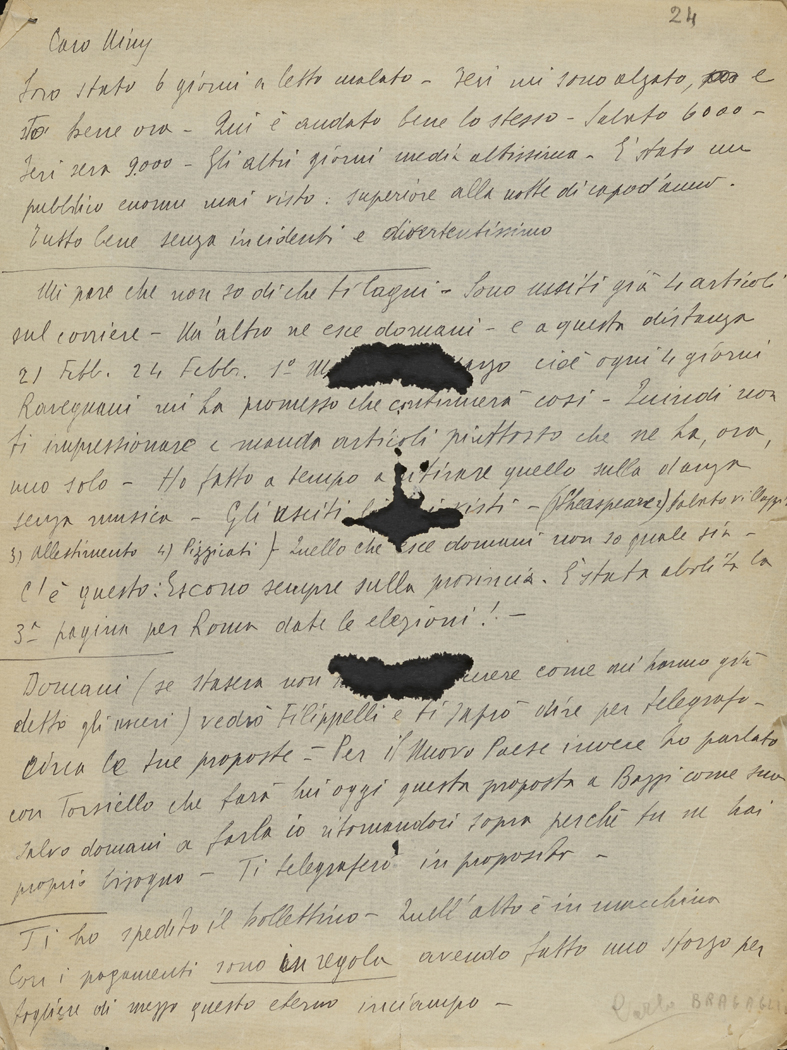 24
Caro
Sono stato 6 giorni a letto malato - Ieri mi sono alzato, e
sto bene ora - Qui è andato bene lo stesso - Sabato 6000 -
Ieri sera 9.000 - Gli altri giorni media altissima - È stato un
pubblico enorme mai visto: superiore alla notte di capod'anno.
Tutto bene senza incidenti e divertentissimo
Mi pare che non so di che ti lagni - Sono usciti già 4 articoli
sul corriere - Un'altro ne esce domani - e a questa distanza
21 Febb. 24 Febb. 1º cioè ogni 4 giorni
Ravegnani mi ha promesso che continuerà così - Quindi non
ti impressionare e manda articoli piuttosto che ne ha, ora,
uno solo - Ho fatto a tempo a ritirare quello sulla danza
senza musica - Gli usciti visti - (Sheaspeare 2)
3) Allestimento 4) Pizzicati) - Quello che esce domani non so quale sia -
C'è questo: Escono sempre sulla provincia. È stata abolita la
3ª pagina per Roma date le elezioni! -
Domani (se stasera non come mi hanno già
detto gli uscieri) vedrò Filippelli e ti saprò dire per telegrafo -
circa le tue proposte - Per il Nuovo Paese invece ho parlato
con Torsiello che farà lui oggi questa proposta a Bazzi come sua
salvo domani a farla io ritornandoci sopra perchè tu ne hai
proprio bisogno - Ti telegraferò in proposito -
Ti ho spedito il bollettino - Quell'altro è in macchina
Con i pagamenti sono in regola avendo fatto uno sforzo per
togliere di mezzo questo eterno inciampo -
Carlo BRAGAGLIA